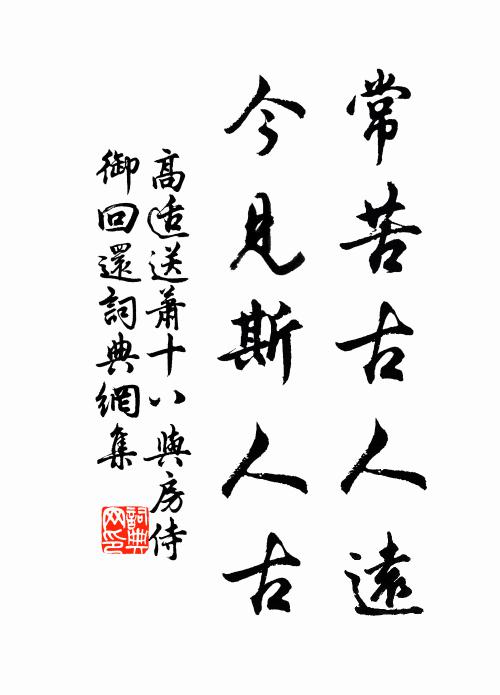 常苦古人遠
今見斯人古
高适送蕭十八與房侍
御回還詞典網集
詞典
网印